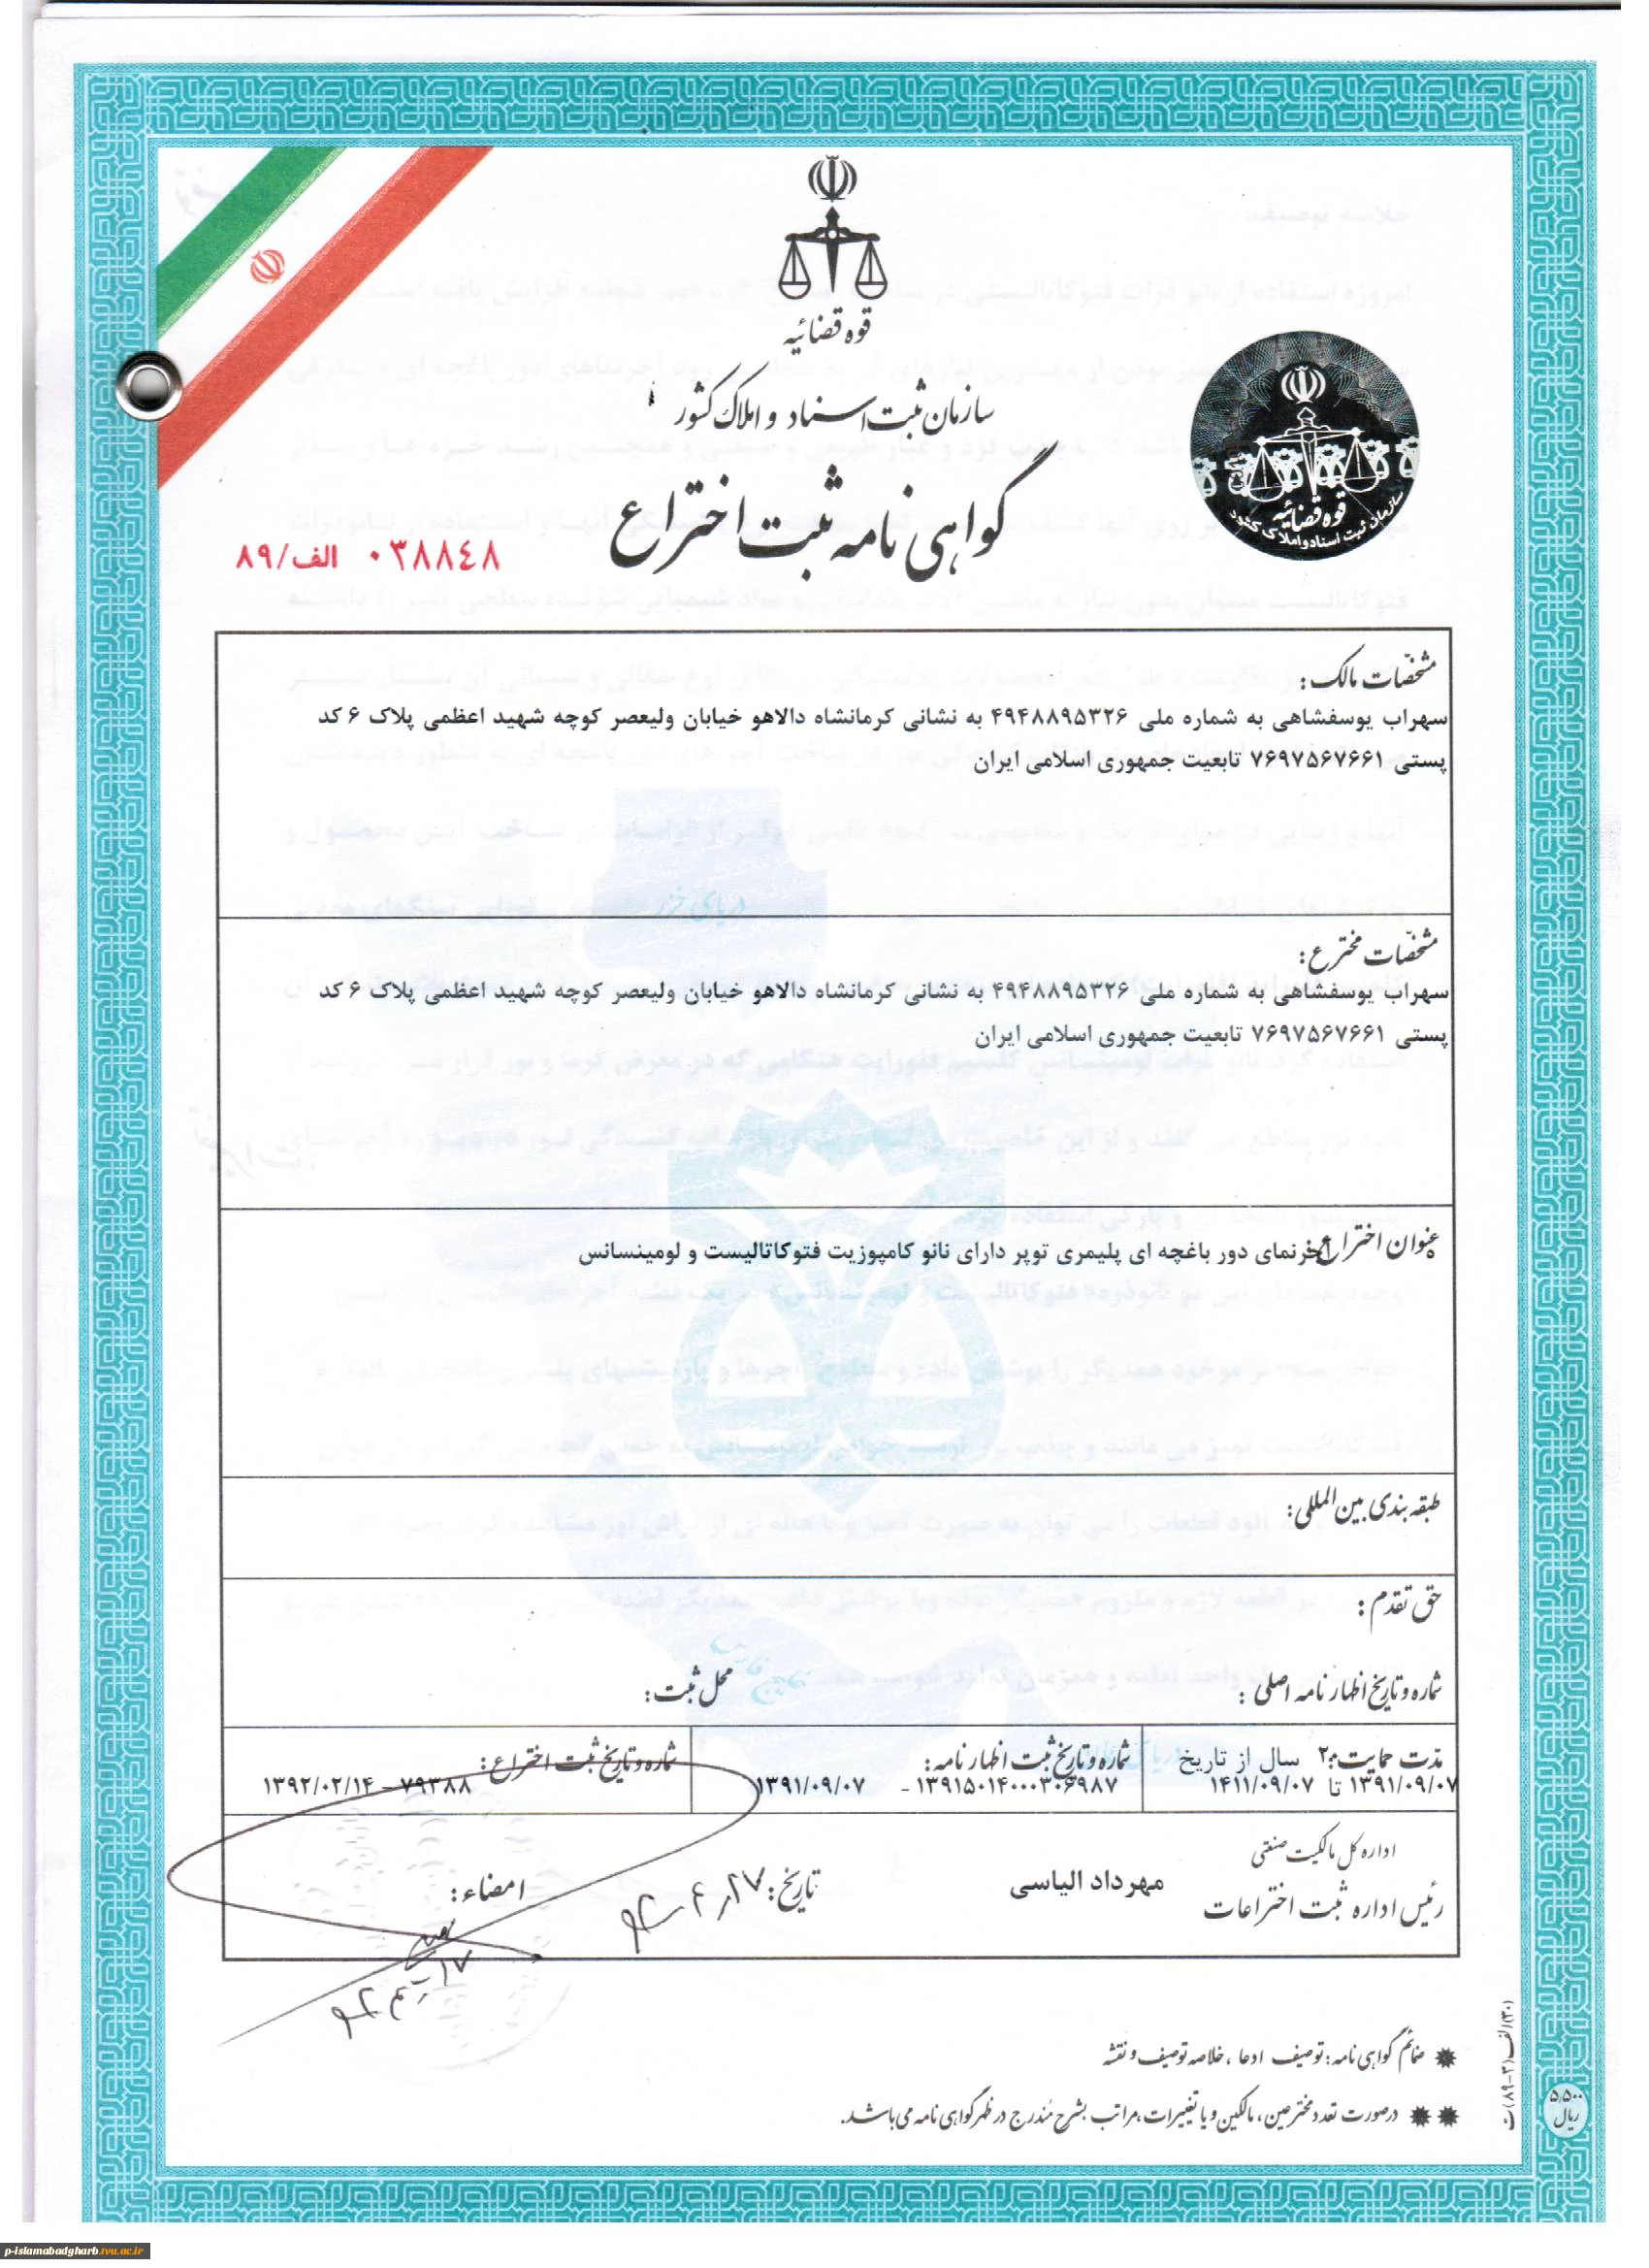 قوه قضائیه
سازمان ثبت اسناد و املاک کشور
گواهی نامه ثبت اختراع
۰۳۸۸۴۸ الف/۸۹
قوه قضائیه
سازمان ثبت اسناد و املاک کشور
مشخّصات مالک:
سهراب یوسفشاهی به شماره ملی ۴۹۴۸۸۹۵۳۲۶ به نشانی کرمانشاه دالاهو خیابان ولیعصر کوچه شهید اعظمی پلاک ۶ کد
پستی ۷۶۹۷۵۶۷۶۶۱ تابعیت جمهوری اسلامی ایران
مشخّصات مخترع:
سهراب یوسفشاهی به شماره ملی ۴۹۴۸۸۹۵۳۲۶ به نشانی کرمانشاه دالاهو خیابان ولیعصر کوچه شهید اعظمی پلاک ۶ کد
پستی ۷۶۹۷۵۶۷۶۶۱ تابعیت جمهوری اسلامی ایران
عنوان اختراع: آجرنمای دور باغچه ای پلیمری توپر دارای نانو کامپوزیت فتوکاتالیست و لومینسانس
طبقه بندی بین المللی:
حق تقدم:
شماره و تاریخ اظهارنامه اصلی: محل ثبت:
مدّت حمایت: ۲۰ سال از تاریخ
۱۳۹۱/۰۹/۰۷ تا ۱۴۱۱/۰۹/۰۷
شماره و تاریخ ثبت اظهارنامه:
۱۳۹۱۵۰۱۴۰۰۰۳۰۶۹۸۷ - ۱۳۹۱/۰۹/۰۷
شماره و تاریخ ثبت اختراع:
۷۹۳۸۸ - ۱۳۹۲/۰۲/۱۴
اداره کل مالکیت صنعتی
رئیس اداره ثبت اختراعات
مهرداد الیاسی
تاریخ:
امضاء:
ضمائم گواهی نامه: توصیف ادعا، خلاصه توصیف و نقشه
درصورت تعدد مخترعین، مالکین و یا تغییرات، مراتب بشرح مندرج در ظهر گواهی نامه می باشد.
۵,۵۰۰
ریال
p-islamabadgharb.tvu.ac.ir